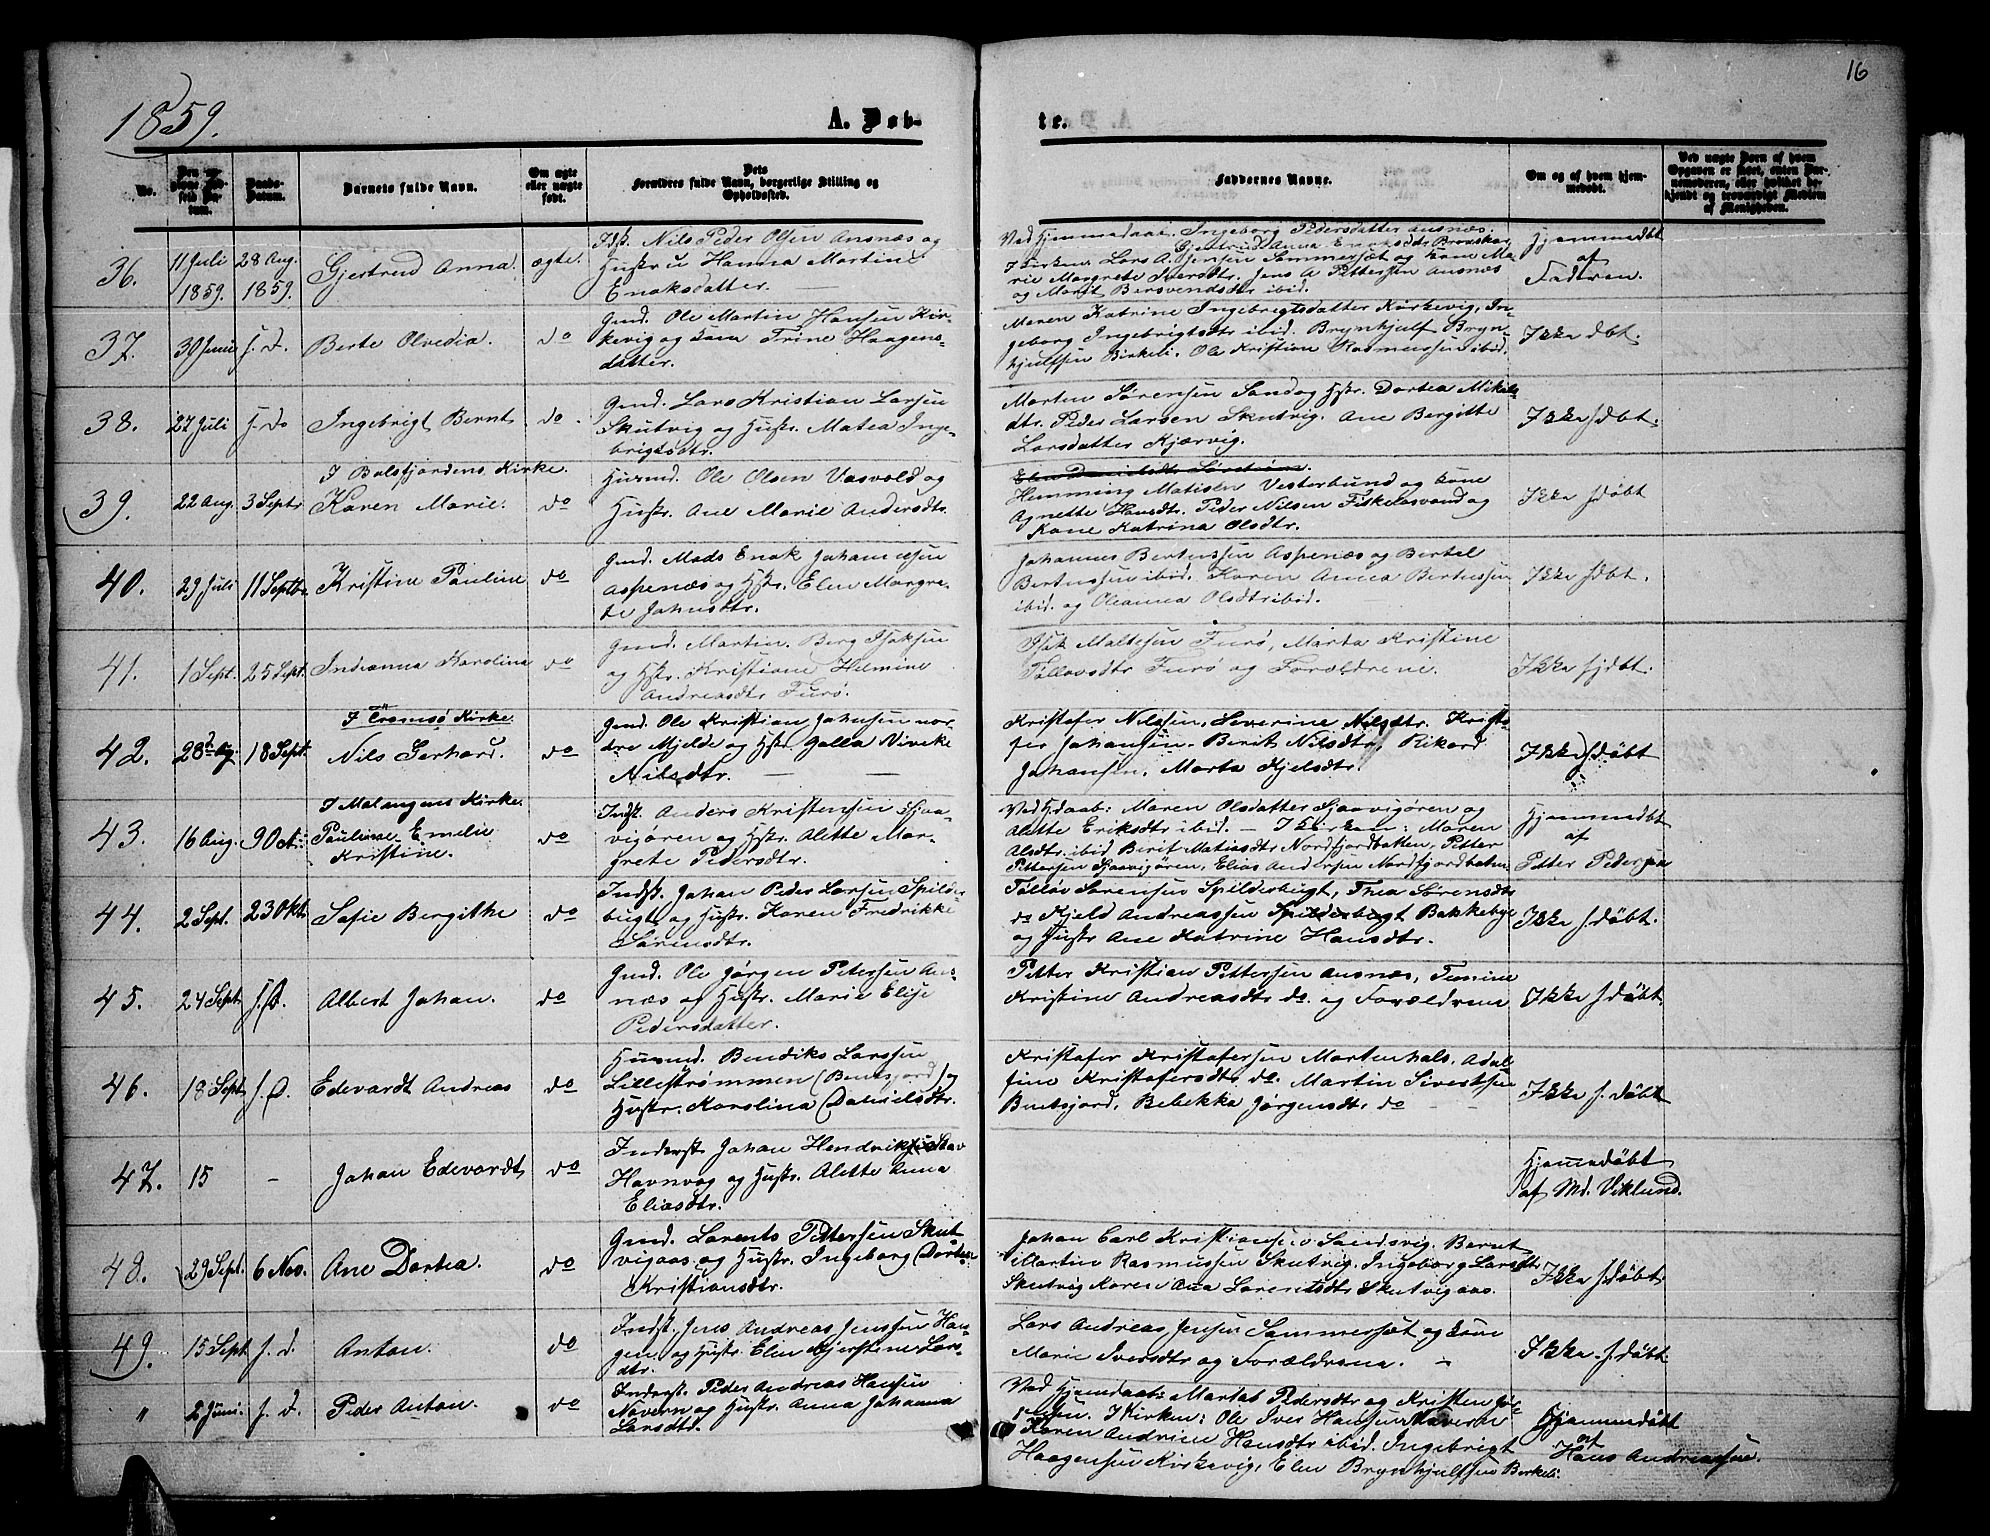 16
1859.
A. Døb-
te.
No.
Den op-
givne Fød-
sels Da-
tum.
Daabs-
Datum.
Barnets fulde Navn.
Om ægte
eller uægte
født.
Dets
Forældres fulde Navn, borgerlige Stilling og
Opholdssted.
Faddernes Navne.
Om og af hvem hjem-
medøbt.
Ved uægte Børn af hvem
Opgaven er skeet, enten Bar-
nemoderen, eller hvilket be-
kjendt og troværdigt Medlem
af Menigheden.
36.
11 Juli
1859.
28 Aug.
1859.
Gjertrud Anna.
ægte.
Indst. Nils Peder Olsen Ansnæs og
Hustru Hanna Martine
Enoksdatter.
Ved Hjemmedaab. Ingeborg Pedersdatter Ansnæs.
Gjertrud Anna Enoksdtr
I Kirken. Lars A. Jensen Sommersæt og Kone Ma-
rie Margrete Iversdtr. Jens A. Pettersen Ansnæs
og Marit Bersvendsdtr ibid.
Hjemmedbt
af
Faderen.
37.
30 Juni
s. D.
Berte Olvedia.
do
Gmd. Ole Martin Hansen Kir-
kevig og Kone Trine Haagens-
datter.
Maren Katrine Ingebrigtsdatter Kirkevig, In-
geborg Ingebrigtsdtr ibid. Brynhjulf Bryn-
hjulfsen Birkeli. Ole Kristian Rasmussen ibid.
Ikke dbt.
38.
27 Juli
s. D.
Ingebrigt Bernt
do.
Gmd. Lars Kristian Larsen
Skutvig og Hustr. Matea Inge-
brigtsdtr.
Morten Sørensen Sand og Hstr. Dortea Mikels
dtr. Peder Larsen Skutvig. Ane Bergitte
Larsdatter Kjærvig.
Ikke hdbt.
39.
22 Aug.
3 Septr
I Balsfjordens Kirke.
Karen Marie.
do
Husmd. Ole Olsen Vasvold og
Hustr. Ane Marie Andersdtr.
Hemming Matisen Vesterbund og Kone
Agnette Hansdtr. Peder Nilsen Fiskeløsvand og
Kone Katrina Olsdtr.
Ikke hdøbt
40.
29 Juli
11 Septbr
Kristine Pauline
do
Gmd. Mads Enok Johannesen
Aspenæs og Hstr. Elen Margre-
te Johnsdtr.
Johannes Bertussen Aspenæs og Bertel
Bertussen ibid. Karen Anna Bertussen
ibid. og Oleanna Olsdtr ibid.
Ikke hdbt.
41.
1 Sept.
25 Sept.
Indianna Karolina
do
Gmd. Martin Berg Isaksen
og Hstr. Kristiane Helmine
Andreasdtr Furø.
Isak Maltesen Furø, Marta Kristine
Tollevsdtr Furø og Forældrene.
Ikke hjdbt
42.
28d Ag.
18 Sept.
I Tromsø Kirke
Nils Gerhard.
do
Gmd. Ole Kristian Johnsen nor-
dre Mjelde og Hstr. Golla Viveke
Nilsdtr.
Kristofer Nilssen, Severine Nilsdtr. Kristo-
fer Johansen. Berit Nilsdtr, Rikard
Johansen, Marta Kjelsdtr
Ikke hdøbt
43.
16 Aug.
9 Oct.
I Malangens Kirke
Pauline Emelie
Kristine.
do
Indst. Anders Kristensen Sjaa-
vigøren og Hstr. Alette Mar-
grete Pedersdtr.
Ved Hdaab: Maren Olsdatter Sjaavigøren og
Alette Eriksdtr ibid. — I Kirken: Maren
Olsdtr. ibid Berit Matiasdtr Nordfjordbotten, Petter
Pettersen Sjaavigøren, Elias Andersen Nordfjordboten
Hjemmedbt
af
Petter Pedersen
44.
2 Sept.
23 Okt.
Sofie Bergithe
do
Indst. Johan Peder Larsen Spilder-
bugt og Hustr. Karen Fredrikke
Sørensdtr.
Tolløv Sørensen Spilderbugt, Thea Sørensdtr
do Kjeld Andreassen Spilderbugt Bakkebye
og Hustr Ane Katrine Hansdtr.
Ikke hdøbt.
45.
24 Sept.
s. D.
Albert Johan.
do
Gmd. Ole Jørgen Petersen Ans-
næs og Hustr. Marie Elise
Pedersdatter.
Petter Kristian Pettersen Ansnæs,
Kristine Andreasdtr do. og Forældrene
Ikke hdøbt
46.
18 Sept
s. D.
Edevardt Andreas
do
Husmd. Bendiks Larssen
Lillestrømmen (Bentsjord) og
Hustr. Karolina Danielsdtr.
Kristofer Kristofersen Mortenhals, Adol-
fine Kristofersdtr do. Martin Sivertsen
Bentsjord, Bebekka Jørgensdtr do
Ikke h. døbt
47.
15
-
Johan Edevardt
do
Inderst. Johan Hendriksen
Havnvog og Hustr. Alette Anna
Eliasdtr.
Hjemmdøbt
af Md. Viklund.
48.
29 Sept.
6 Nov.
Ane Dortea.
do
Gmd. Lorents Pettersen Skut-
vigaas og Hustr. Ingeborg Dortea
Kristiansdtr.
Johan Carl Kristiansen Sandsvig. Bernt
Martin Rasmussen Skutvig. Ingeborg Larsdtr
Skutvig Karen Ana Lorentsdtr Skutvigaas.
Ikke hdøbt
49.
15 Sept
s. d.
Anton.
do
Indst. Jens Andreas Jenssen Hau-
gen og Hustr. Elen Kjerstine Lars-
dtr.
Lars Andreas Jensen Sommersæt og Kone
Marie Iversdtr og Forældrene.
Ikke hdøbt
"
2 Juni.
s. d.
Peder Anton.
do
Inderst. Peder Andreas Hansen
Navern og Hustr. Anna Johanna
Larsdtr.
Ved Hjemdaab: Martat Pedersdtr og Kristen Jør-
gensen. I Kirken: Ole Iver Hansen Navern
Karen Andrine Hansdtr ibid. Ingebrigt
Haagensen Kirkevig, Elen Brynhjulfsen Berkeli.
Hjemmdøbt
af
Hans Andreassen.